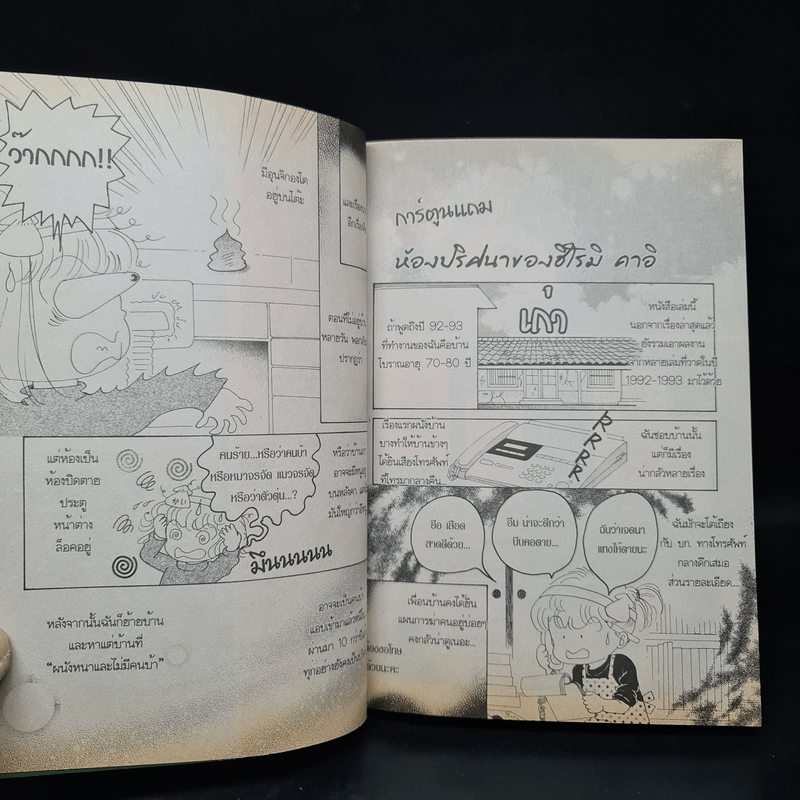 ว๊ากกกก!!
มีอุนจิกองโต
อยู่บนโต๊ะ
ตอนที่ไม่อยู่บ้าน
หลายวัน
ปรากฏว่า
แต่ห้องเป็น
ห้องปิดตาย
ประตู
หน้าต่าง
ล็อคอยู่
คนร้าย...หรือว่าคนบ้า
หรือหมาจรจัด แมวจรจัด
หรือว่าตัวตุ่น...?
มึนนนนน
หลังจากนั้นฉันก็ย้ายบ้าน
และหาแต่บ้านที่
"ผนังหนาและไม่มีคนบ้า"
อาจจะเป็นคนบ้า
ผ่านมา 10 กว่าปี
การ์ตูนแถม
ห้องปริศนาของฮิโรมิ คาอิ
ถ้าพูดถึงปี 92-93
ที่ทำงานของฉันคือบ้าน
โบราณอายุ 70-80 ปี
เก่า
หนังสือเล่มนี้
นอกจากเรื่องล่าสุดแล้ว
ยังรวมเอาผลงาน
จากหลายเล่มที่วาดในปี
1992-1993 มาไว้ด้วย
เรื่องแรกผนังบ้าน
บางทำให้บ้านข้างๆ
ได้ยินเสียงโทรศัพท์
ที่โทรมากลางคืน
RRRRR
ฉันชอบบ้านนั้น
แต่ก็มีเรื่อง
น่ากลัวหลายเรื่อง
ฮือ เลือด
สาดดีด้วย...
อืม น่าจะดีกว่า
บีบคอตาย...
ฉันว่าเจตนา
แทงให้ตายนะ
ฉันมักจะโต้เถียง
กับ บก. ทางโทรศัพท์
กลางดึกเสมอ
ส่วนรายละเอียด...
เพื่อนบ้านคงได้ยิน
แผนการฆ่าคนอยู่บ่อยๆ
คงกลัวน่าดูเนอะ...
ต้องขอโทษ
ด้วยนะคะ